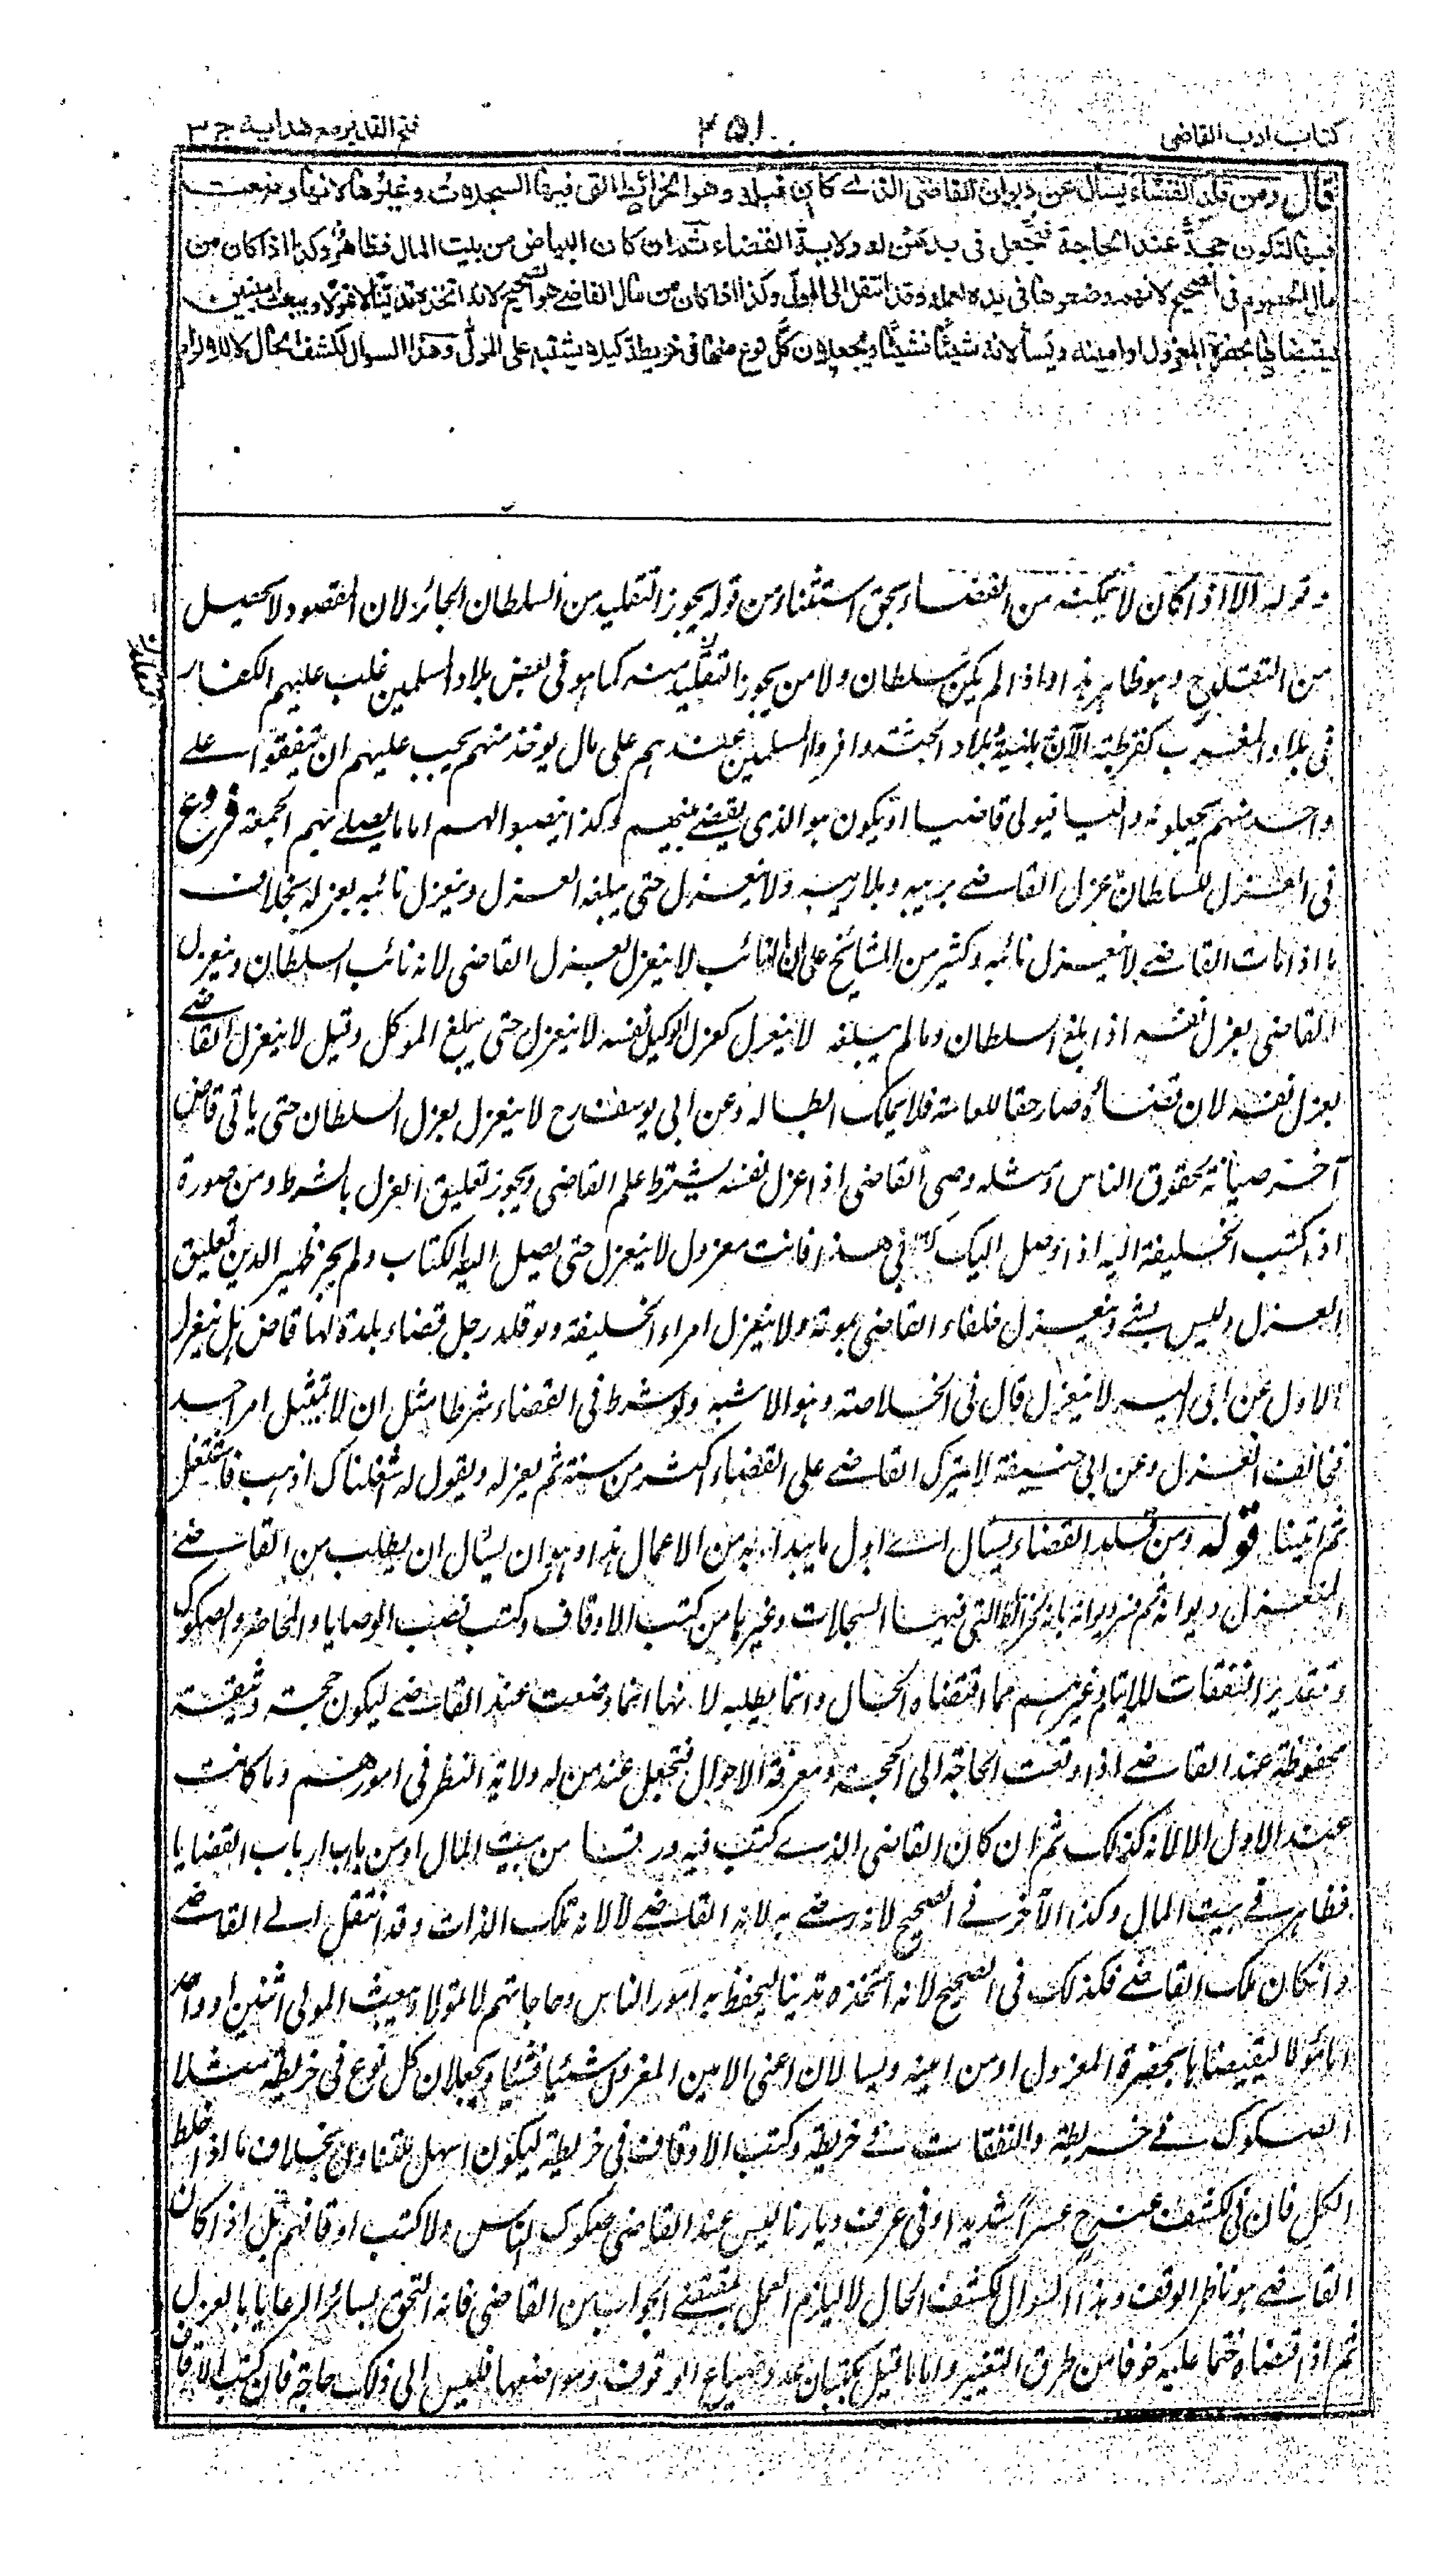 كتاب ادب القاضى
٢٥١
فتح القدير مع هداية ج ٣
قال ومن قلد القضاء يسأل عن ديوان القاضى الذى كان قبله وهو الخرائط التى فيها السجلات وغيرها لانها وضعت
فيها لتكون حجة عند الحاجة فتجعل فى يد من له ولاية القضاء ثم ان كان البياض من بيت المال فظاهر وكذا اذا كان من
مال الخصوم فى الصحيح لانهم وضعوها فى يده لعمله وقد انتقل الى المولى وكذا اذا كان من مال القاضى هو الصحيح لانه اتخذه تدينا لا تمولا ويبعث امينين
ليقبضاها بحضرة المعزول او امينه ويسألانه شيئا فشيئا ويجعلان كل نوع منها فى خريطة كيلا يشتبه على المولى وهذا السوال لكشف الحال لا للالزام
وقوله الا اذا كان لا يمكنه من القضاء بحق استثناء من قوله يجوز التقليد من السلطان الجائر لان المقصود لا يحصل
من التقليد وهو ظاهر هذا واذا لم يكن سلطان ولا من يجوز التقلد منه كما هو فى بعض بلاد المسلمين غلب عليهم الكفار
فى بلاد المغرب كقرطبة الآن بلنسية وبلاد الحبشة واقروا المسلمين عندهم على مال يوخذ منهم يجب عليهم ان يتفقوا على
واحد منهم يجعلونه واليا فيولى قاضيا او يكون هو الذى يقضى بينهم وكذا ينصبوا لهم اماما يصلى بهم الجمعة فروع
فى العزل للسلطان عزل القاضى بريبة وبلا ريبة ولا ينعزل حتى يبلغه العزل وينعزل نائبه بعزله بخلاف
ما اذا مات القاضى لا ينعزل نائبه وكثير من المشائخ على ان النائب لا ينعزل بعزل القاضى لانه نائب السلطان وينعزل
القاضى بعزل نفسه اذا بلغ السلطان وما لم يبلغه لا ينعزل كعزل الوكيل نفسه لا ينعزل حتى يبلغ الموكل وقيل لا ينعزل القاضى
بعزل نفسه لان قضاءه صار حقا للعامة فلا يملك ابطاله وعن ابى يوسف رح لا ينعزل بعزل السلطان حتى ياتى قاض
آخر صيانة لحقوق الناس ومثله وصى القاضى اذا عزل نفسه يشترط علم القاضى ويجوز تعليق العزل بالشرط ومن صورة
اذا كتب الخليفة اليه اذا وصل اليك كتابى هذا فانت معزول لا ينعزل حتى يصل اليه الكتاب ولم يجز ظهير الدين تعليق
العزل وليس بشئ وينعزل خلفاء القاضى بموته ولا ينعزل امراء الخليفة ولو قلد رجل قضاء بلدة لها قاض هل ينعزل
الاول عن ابى اليسر لا ينعزل قال فى الخلاصة وهو الاشبه ولو شرط فى القضاء شرطا مثل ان لا يمتثل امر احد
فخالف انعزل وعن ابى حنيفة لا يترك القاضى على القضاء اكثر من سنة ثم يعزله ويقول له شغلناك اذهب فاشتغل
ثم اتينا قوله ومن قلد القضاء يسأل اى اول ما يبدأ به من الاعمال هذا وهو ان يسأل ان يطلب من القاضى
المنعزل ديوانه ثم فسر ديوانه بانه الخرائط التى فيها السجلات وغيرها من كتب الاوقاف وكتب نصب الوصايا والمحاضر والصكوك
وتقدير النفقات للايتام وغيرهم مما اقتضاه الحال وانما يطلبه لانها انما وضعت عند القاضى ليكون حجة وثيقة
محفوظة عند القاضى اذا وقعت الحاجة الى الحجة ومعرفة الاحوال فتجعل عند من له ولاية النظر فى امورهم وما كانت
عند الاول الا لانه كذلك ثم ان كان القاضى الذى كتب فيه ورقا من بيت المال او من ارباب القضايا
فظاهر فى بيت المال وكذا الآخر فى الصحيح لانه رضى به لانه القاضى لا لانه تملك الذات وقد انتقل الى القاضى
وان كان ملك القاضى فكذلك فى الصحيح لانه اتخذه تدينا ليحفظ به امور الناس وحاجاتهم لا تمولا ويبعث المولى اثنين او واحدا
مامونا ليقبضاها بحضرة المعزول او من امينه ويسالان اعنى الامين المعزول شيئا فشيئا ويجعلان كل نوع فى خريطة مثلا
الصكوك فى خريطة والنفقات فى خريطة وكتب الاوقاف فى خريطة ليكون اسهل للتناول بخلاف ما اذا خلط
الكل فان فى الكشف عسرا شديدا وفى عرف ديارنا ليس عند القاضى صكوك الناس ولا كتب اوقافهم بل اذا كان
القاضى هو ناظر الوقف وهذا السوال لكشف الحال لا ليلزم العمل بمقتضى الجواب من القاضى فانه التحق بسائر الرعايا بالعزل
ثم اذا قبضاه ختما عليه خوفا من طرق التغيير واما ما قيل يكتبان عدد ضياع الوقوف ومواضعها فليس الى ذلك حاجة فان كتب الاوقاف